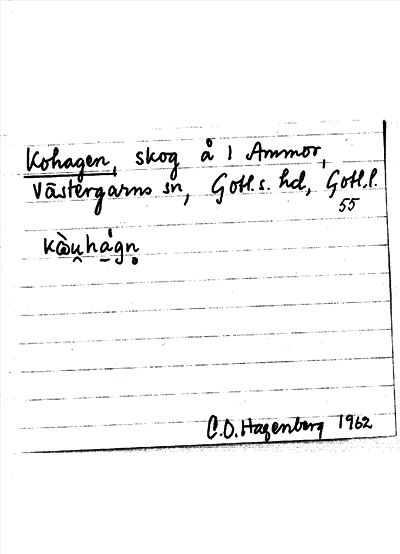 Kohagen, skog å 1 Ammor,
Västergarns sn, Gotl. s. hd, Gotl. l.
55
C.O. Hagenberg 1962